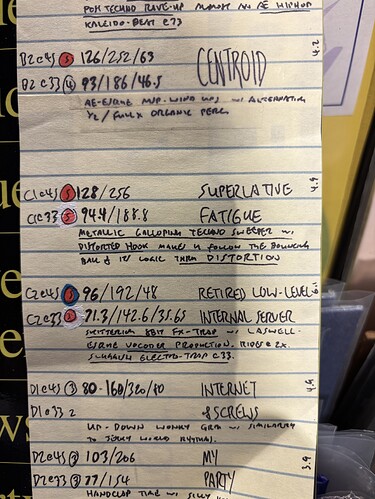 POM TECHNO RAVE-UP ALMOST AN AE HIPHOP
KALEIDO-BEAT @33
B2@45 5 126/252/63 CENTROID 4.2
B2@33 4 93/186/46.5
AE-ESQUE W/ ALTERNATING
1/2 / FULLX ORGANIC PERC
C1@45 5 128/256 SUPERLATIVE 4.9
C1@33 5 94.4/188.8 FATIGUE
METALLIC GALLOPING TECHNO SWEEPER W/
DISTORTED HOOK MAKES U FOLLOW THE BOUNCING
BALL & ITS LOGIC THRU DISTORTION
C2@45 5 96/192/48 RETIRED LOW-LEVEL 6.11
C2@33 5 71.3/142.6/35.65 INTERNAL SERVER
SKITTERING 8BIT FX-TRAP W/ LASWELL-
ESQUE VOCODER PRODUCTION. RIDES @ 2X.
ELECTRO-TRAP @33.
D1@45 3 80-160/320/40 INTERNET
D1@33 2 &SCREWS
UP-DOWN WONKY GRID W/ SIMILARITY
TO JERKY WORLD RHYTHMS.
D2@45 3 103/206 MY 3.9
D2@33 3 77/154 PARTY
HANDCLAP TIME W/ SILLY